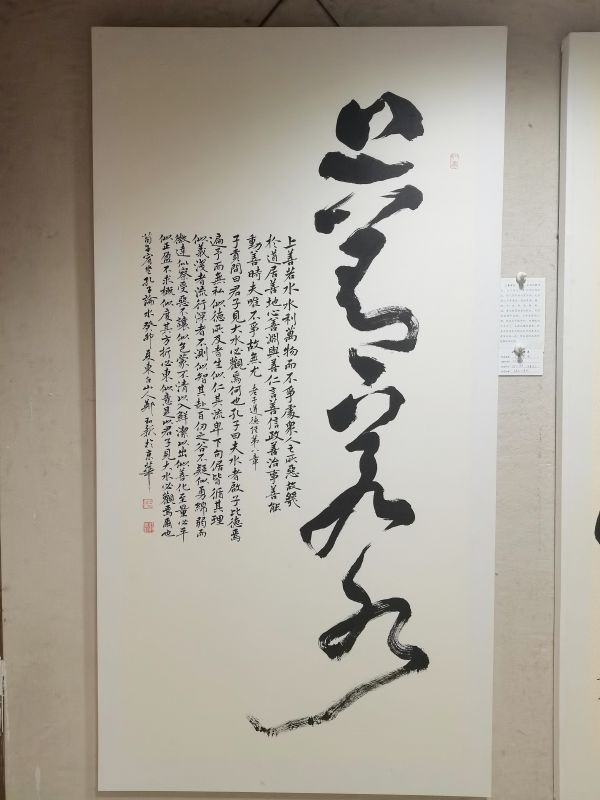 上善若水
上善若水水利萬物而不爭處衆人之所惡故幾
於道居善地心善淵與善仁言善信政善治事善能
動善時夫唯不爭故無尤 老子道德經第八章
子貢問曰君子見大水必觀焉何也孔子曰夫水者啟子比德焉
遍予而無私似德所及者生似仁其流卑下句倨皆循其理
似義淺者流行深者不測似智其赴百仞之谷不疑似勇綿弱而
微達似察受惡不讓似包蒙不清以入鮮潔以出似善化至量必平
似正盈不求概似度其万折必東似意是以君子見大水必觀焉爾也
荀子宥坐孔子論水癸卯夏東白山人鄭於京華